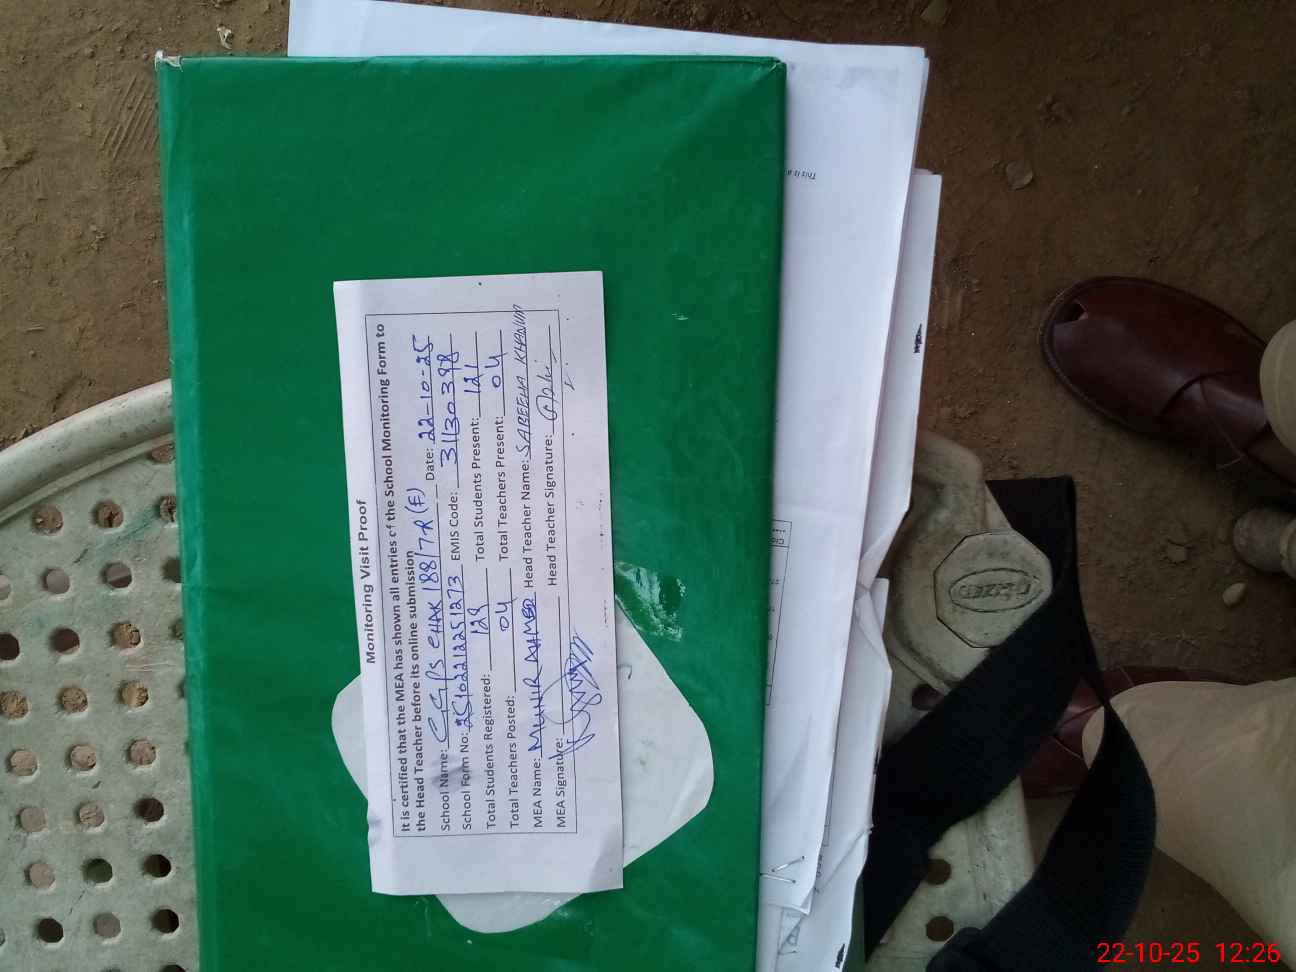 Monitoring Visit Proof
It is certified that the MEA has shown all entries of the School Monitoring Form to
the Head Teacher before its online submission
School Name: GGPS CHAK 188/7-R (F) Date: 22-10-25
School Form No: EMIS Code: 31130398
Total Students Registered: 129 Total Students Present: 121
Total Teachers Posted: 04 Total Teachers Present: 04
MEA Name: MUNIR AHMED Head Teacher Name: SABEEHA KHANUM
MEA Signature: Head Teacher Signature:
This is a
22-10-25 12:26